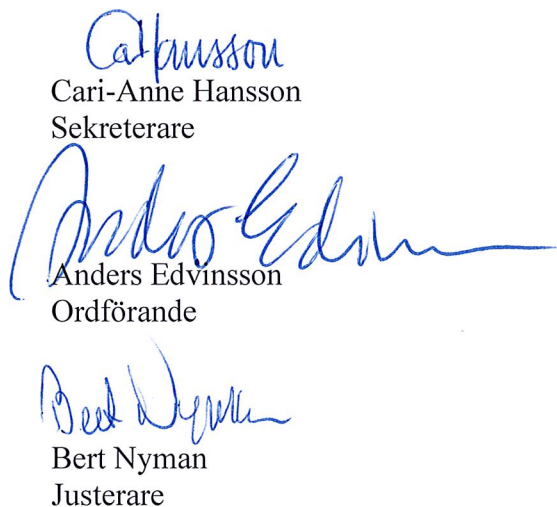 CaHansson
Cari-Anne Hansson
Sekreterare
Anders Edvin
Anders Edvinsson
Ordförande
Bert Nyman
Bert Nyman
Justerare